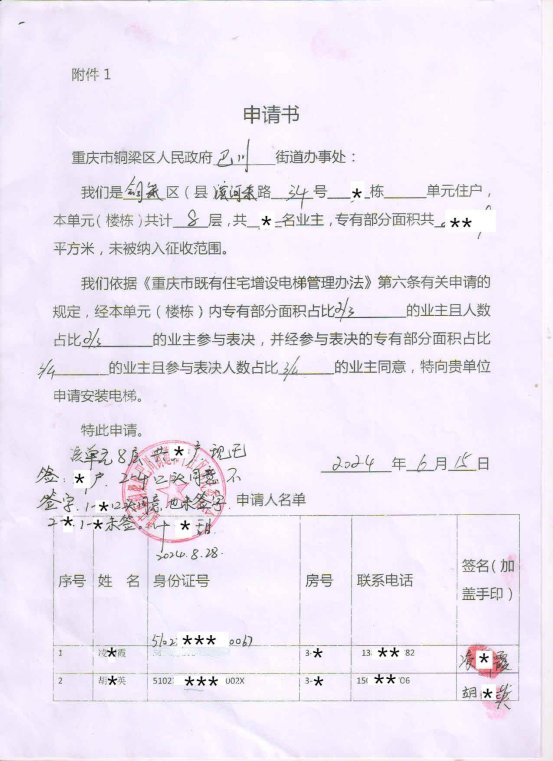 附件1
申请书
重庆市铜梁区人民政府巴川街道办事处：
我们是铜梁区（县滨河东路34号*栋 单元住户，
本单元（楼栋）共计8层，共*名业主，专有部分面积共**
平方米，未被纳入征收范围。
我们依据《重庆市既有住宅增设电梯管理办法》第六条有关申请的
规定，经本单元（楼栋）内专有部分面积占比2/3的业主且人数
占比2/3的业主参与表决，并经参与表决的专有部分面积占比
3/4的业主且参与表决人数占比3/4的业主同意，特向贵单位
申请安装电梯。
特此申请。
该单元8层，共*户，现已
2024年6月15日
签*户，2-4口头同意不
签字，1-*口头同意也未签字
申请人名单
2-*，1-*未签。
2024.8.28.
序号 姓名 身份证号 房号 联系电话 签名（加盖手印）
1 凌*霞 5102***0067 3-* 13**82 凌*霞
2 胡*英 5102***002X 3-* 150**06 胡*英